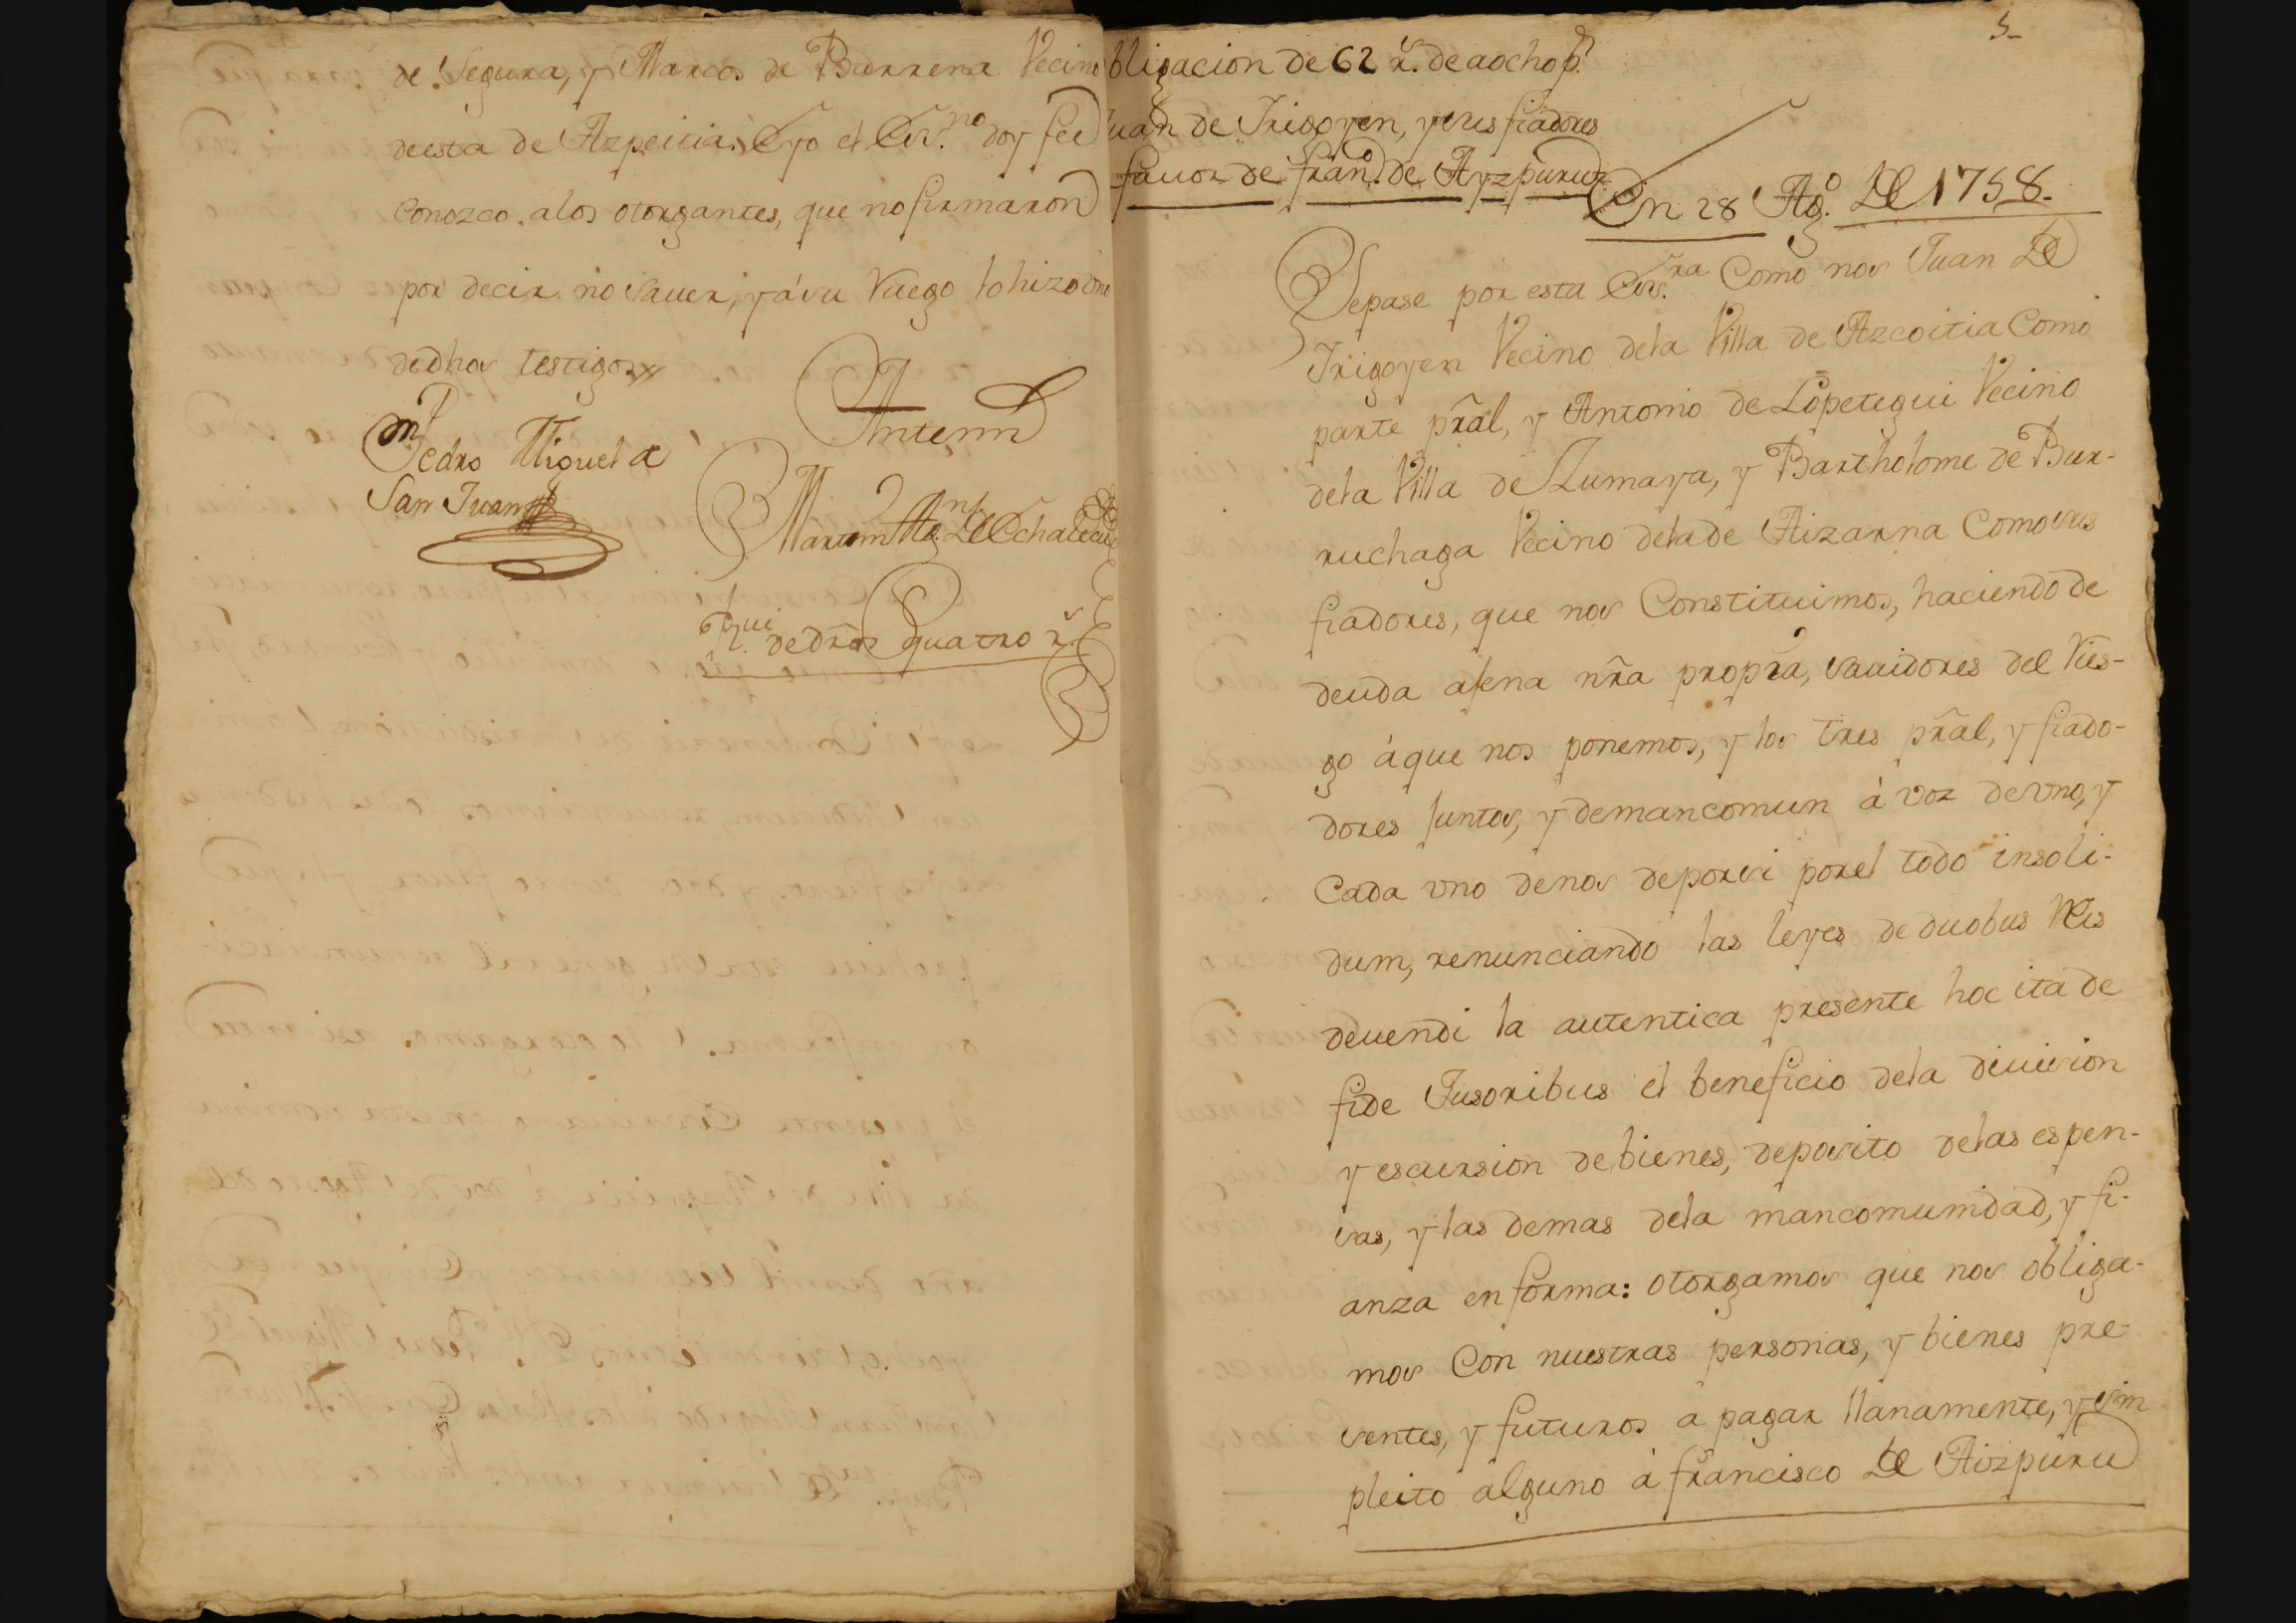 de Segura, y Marcos de Barrena Vecino
deesta de Azpeitia. E yo el Essno. doy fee
Conozco. alos otorgantes, que no firmaron
por decir no sauer, y á su Ruego lo hizo vno
dedhos testigos
Pedro Miguel de
San Juan
Antemi
Martin Ag.n De Echalecu
de dros quatro rs.
5
bligacion de 62 rs. de aocho p.ta
Juan de Irigoyen, y sus fiadores
fauor de fran.co de Ayzpurua
En 28 Ag.o De 1758.
Sepase por esta Ess.ra Como nos Juan De
Irigoyen Vecino dela Villa de Azcoitia Como
parte pral, y Antonio de Lopetegui Vecino
dela Villa de Zumaya, y Bartholome de Bur-
ruchaga Vecino delade Aizarna Como sus
fiadores, que nos Constituimos, haciendo de
deuda ajena nra propria, sauidores del Ries-
go áque nos ponemos, y los tres pral, y fiado-
dores Juntos, y demancomun á voz de vno, y
Cada vno denos deporsi porel todo insoli-
dum, renunciando las leyes de duobus Reis
deuendi la autentica presente hoc ita de
fide Jusoribus el beneficio dela diuision
y escursion debienes, deposito delas espen-
sas, y las demas dela mancomunidad, y fi-
anza en forma: otorgamos que nos obliga-
mos Con nuestras personas, y bienes pre-
sentes, y futuros a pagar llanamente, y sin
pleito alguno á francisco De Aizpuru